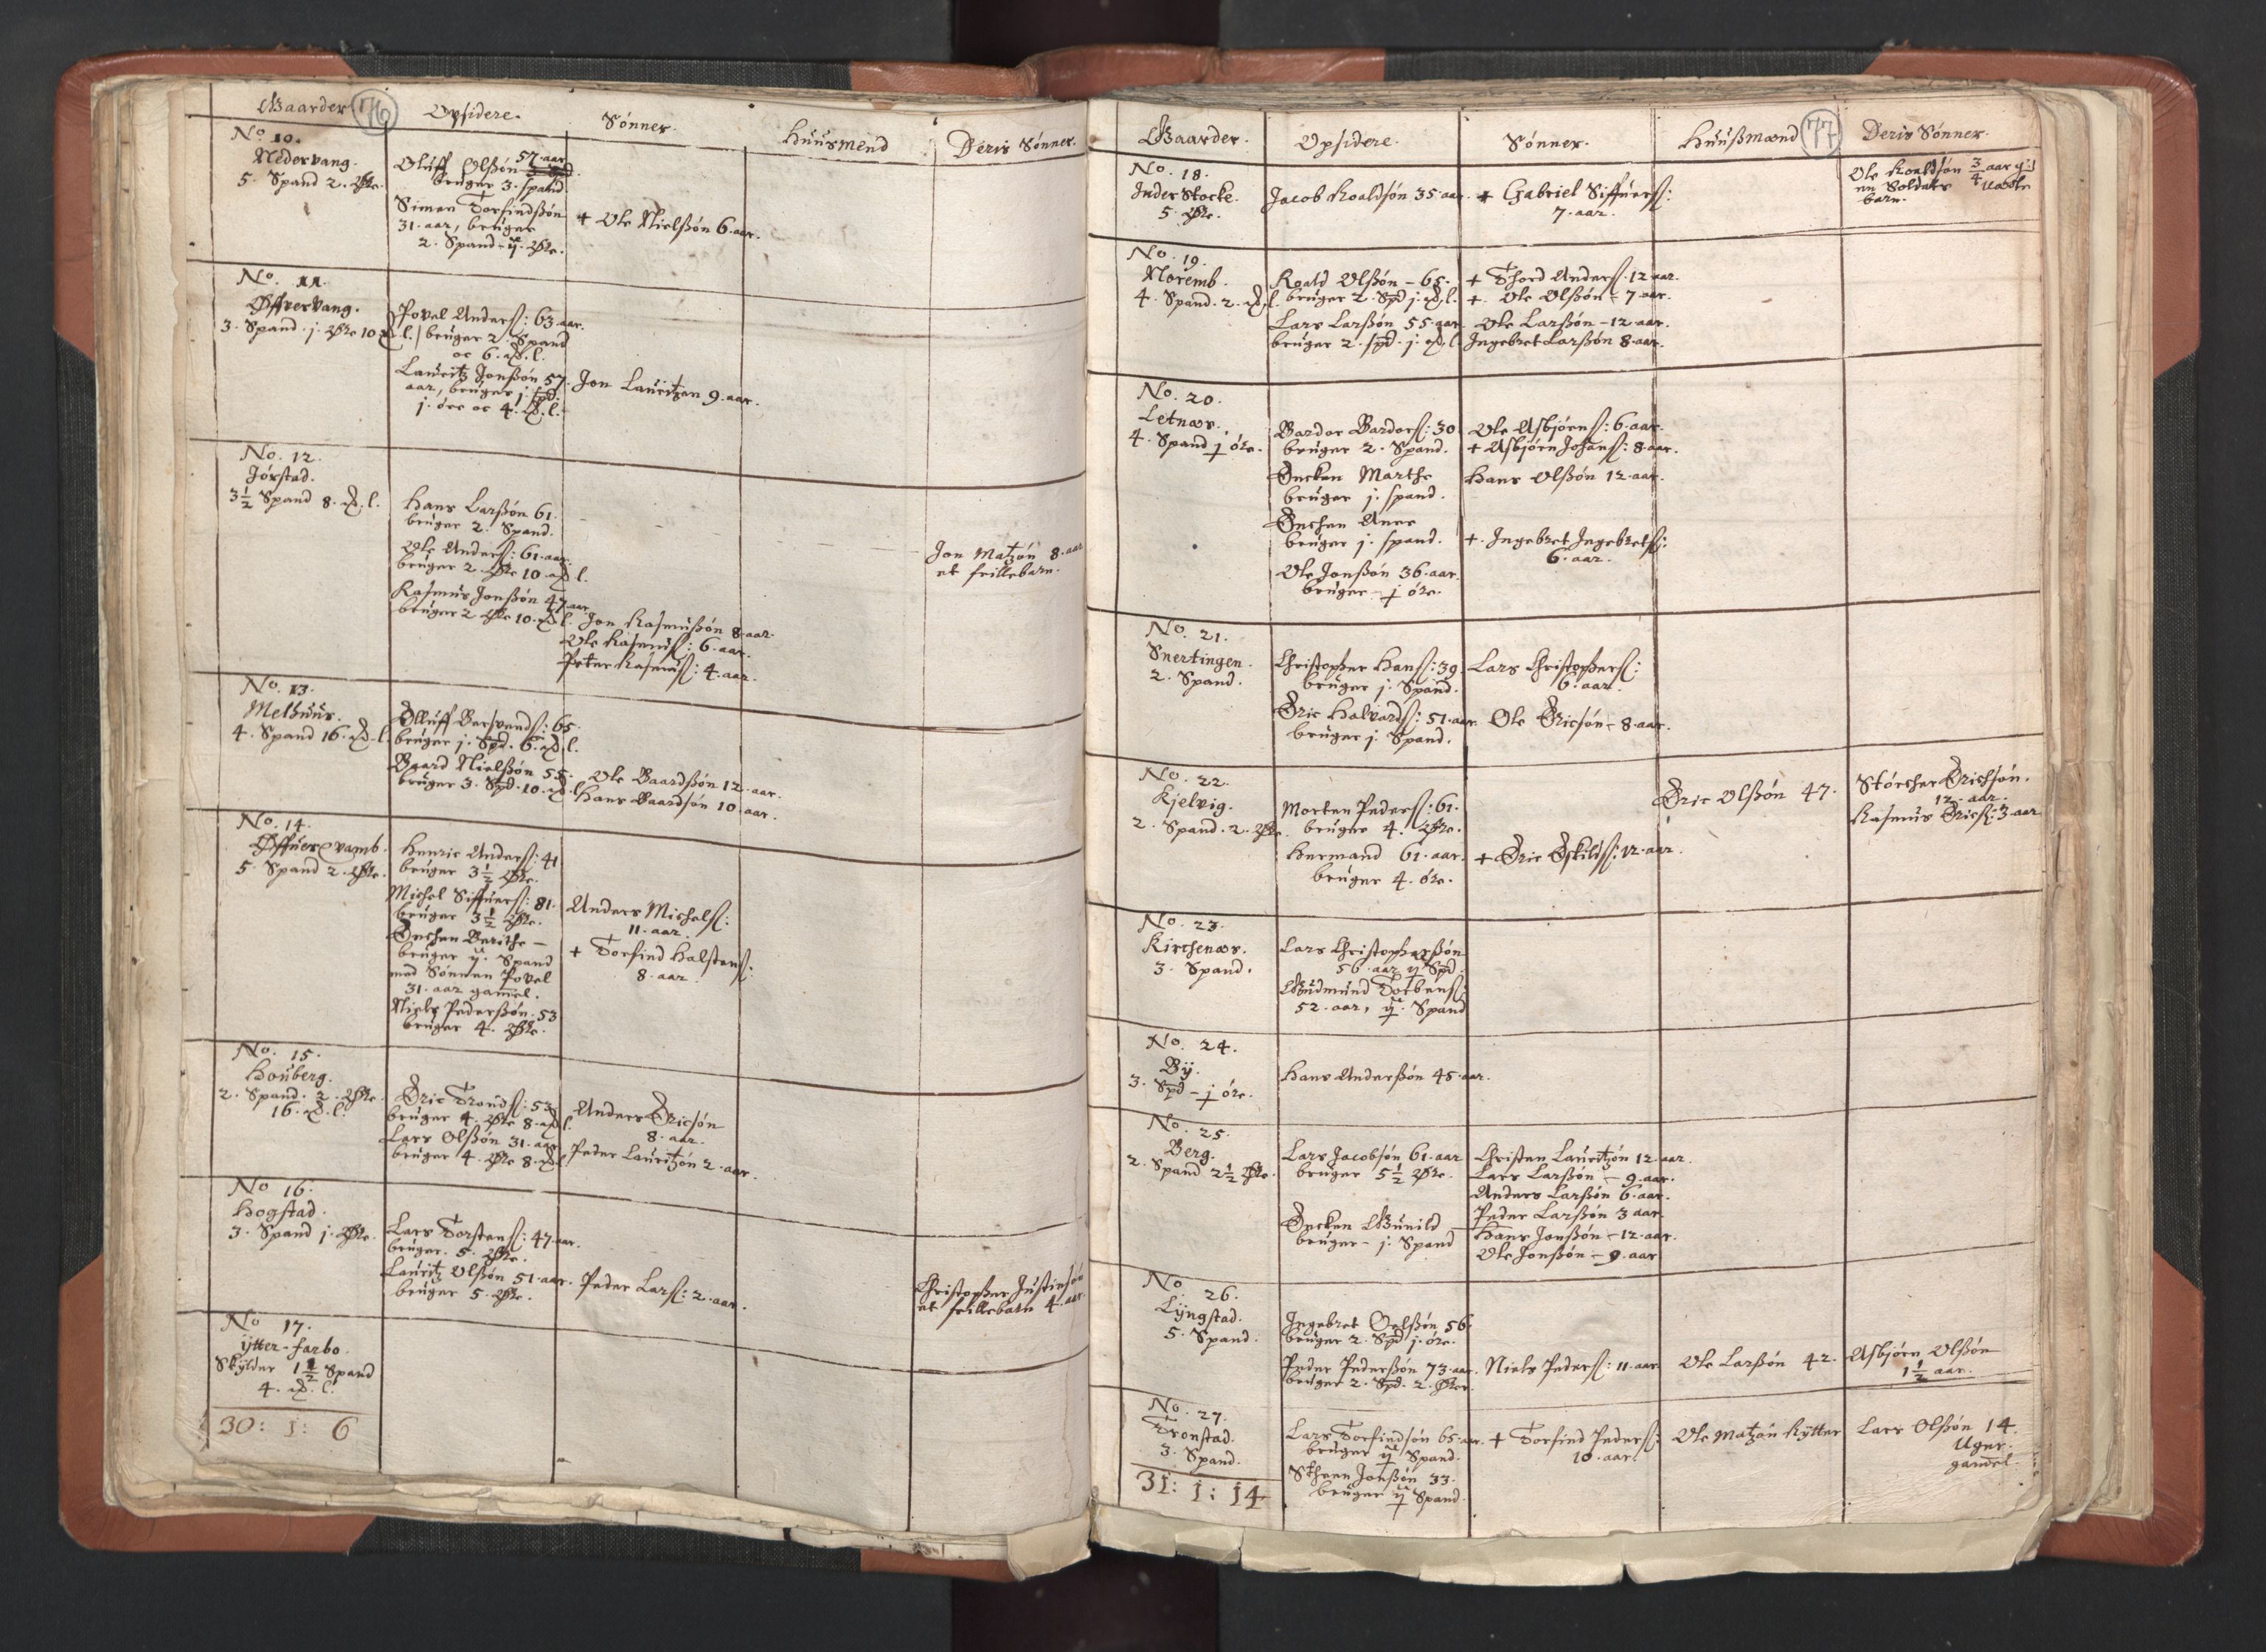 Gaarder. 76 Opsidere. Sønner. Huusmend Deris Sønner.
No 10.
Nedervang.
5. Spand 2. Øre.
Oluff Olßøn 57. aar
bruger 3. spand.
Simen Torfindßøn
31. aar, bruger
2. Spand - ij. Øre.
+ Ole Nielßøn 6. aar.
No. 11.
Øffvervang.
3. Spand. j. Øre 10 ℔. l.
Povel Anderß: 63. aar.
bruger 2. Spand
oc 6. ℔. l.
Lauritz Jonßøn 57.
aar, bruger j. spd.
j. øre oc 4. ℔. l.
Jon Lauritzen 9. aar.
No. 12.
Jørstad.
3½ Spand 8. ℔. l.
Hans Larßøn 61.
bruger 2. Spand.
Ole Anderß: 61. aar.
bruger 2. Øre 10. ℔ l.
Rasmus Jonßøn 47. aar
bruger 2 Øre 10. ℔ l.
Jon Rasmußøn 8. aar.
Ole Rasmuß: 6. aar.
Peter Rasmuß: 4. aar.
Jon Matzøn 8. aar
et frillebarn.
No. 13.
Melhuus.
4. Spand 16. ℔. l
Olluff Barsvendß: 65.
bruger j. Spd. 6. ℔. l.
Baard Nielßøn 55.
bruger 3. Spd. 10. ℔. l
Ole Baardßøn 12. aar.
Hans Baardsøn 10. aar.
No. 14.
Øffuersvamb.
5. Spand 2. Øre.
Henric Anderß: 41
bruger 3½ Øre.
Michel Siffuerß: 81.
bruger 3½ Øre.
Enchen Berithe -
bruger ij. Spand
med Sønnen Povel
31. aar gamel.
Niels Pederßøn. 53
bruger 4. Øre.
Anders Michelß:
11. aar.
+ Torfind Halstenß:
8. aar.
No. 15.
Houberg.
2. Spand. 2. Øre.
16. ℔. l.
Eric Trondß: 53
bruger 4. Øre 8. ℔ l.
Lars Olßøn 31. aar
bruger 4. Øre 8. ℔ l
Anders Ericsøn
8. aar.
Peder Lauritzøn 2. aar.
No 16.
Hogstad.
3. Spand j. Øre.
Lars Torstenß: 47. aar.
bruger. 5. Øre.
Lauritz Olßøn 51. aar.
bruger 5. Øre.
Peder Larß: 2. aar.
Christopher Justinsøn
et frillebarn 4. aar
No 17.
ytter-farbo.
Skylder 1½ Spand
4. ℔. l.
30: 1: 6
Gaarder. Opsidere. Sønner. Huußmænd 77 Deris Sønner.
No. 18.
Inder Stocke.
5. Øre.
Jacob Roaldsøn 35. aar.
+ Gabriel Siffuerß:
7. aar.
Ole Roaldsøn ¾ aar
en Soldats
barn.
No. 19.
Noremb.
4. Spand. 2. ℔. l.
Roald Olßøn - 65.
bruger 2. Spd j. ℔. l.
Lars Larßøn 55. aar.
bruger 2. spd. j. ℔. l
+ Thord Anderß. 12. aar.
+. Ole Olßøn - 7. aar.
Ole Larßøn - 12. aar.
Ingebret Larßøn 8. aar.
No. 20.
Letnæs.
4. Spand j øre.
Bardor Bardorß: 30
bruger 2. Spand.
Encken Marthe
bruger j. spand.
Enchen Ane
bruger j. spand.
Ole Jonßøn 36. aar.
bruger - j øre.
Ole Asbjørnß: 6. aar.
+ Asbjørn Johanß: 8. aar.
Hans Olßøn 12. aar.
+. Ingebret Ingebretß:
6. aar.
No. 21.
Snertingen.
2. Spand.
Christopher Hanß: 39.
bruger j. Spand.
Eric Halvardß: 51. aar.
bruger j. Spand.
Lars Christopherß:
6. aar.
Ole Ericsøn - 8. aar.
No. 22.
Kjelvig.
2. Spand. 2. Øre.
Morten Pederß: 61.
bruger 4. Øre.
Hermand 61. aar.
bruger 4. øre.
+ Eric Eskildß: 12. aar.
Eric Olßøn 47.
Størcher Erichsøn.
12. aar.
Rasmus Ericß: 3 aar
No. 23.
Kirchenæs.
3. Spand.
Lars Christopherßøn
56. aar. ij Spd.
Gudmund Torbenß:
52. aar, ij. Spand
No. 24.
By.
3. Spd - j øre.
Hans Anderßøn 45. aar.
No. 25.
Berg.
2. Spand 2½ Øre.
Lars Jacobsøn 61. aar
bruger 5½ Øre.
Encken Gunild -
bruger - j. Spand
Christen Lauritzøn 12. aar.
Lars Larßøn - 9. aar.
Anders Larßøn 6. aar.
Peder Larßøn 3 aar.
Hans Jonßøn - 12. aar.
Ole Jonßøn - 9. aar
No. 26.
Lyngstad.
5. Spand.
Ingebret Oelßøn 56.
bruger 2. Spd j. øre.
Peder Pederßøn 73. aar.
bruger 2. Spd. 2. Øre.
Niels Pederß: 11. aar.
Ole Larßøn 42.
Asbjørn Olßøn
1½ aar.
No. 27.
Tronstad.
3. Spand.
Lars Torfindsøn 65. aar.
bruger ij Spand.
Sthen Jonßøn 33.
bruger ij Spand.
+ Torfind Pederß:
10. aar.
Ole Matzøn Rytter
Lars Olßøn 14.
Uger.
gamel.
31: 1: 14